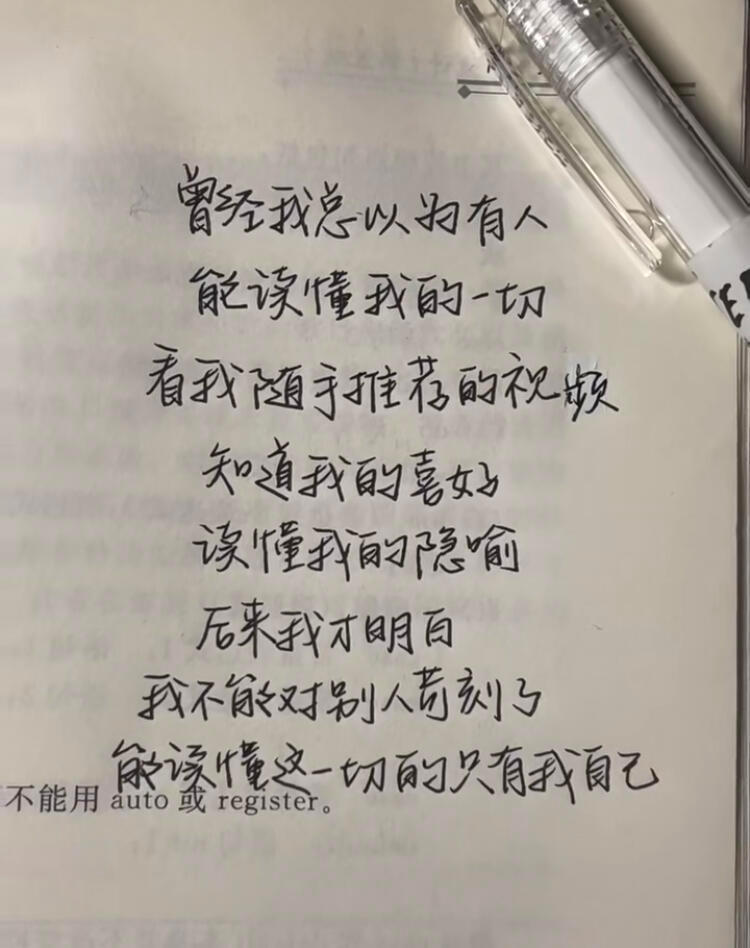 曾经我总以为有人
能读懂我的一切
看我随手推荐的视频
知道我的喜好
读懂我的隐喻
后来我才明白
我不能对别人苛刻了
能读懂这一切的只有我自己
不能用 auto 或 register。